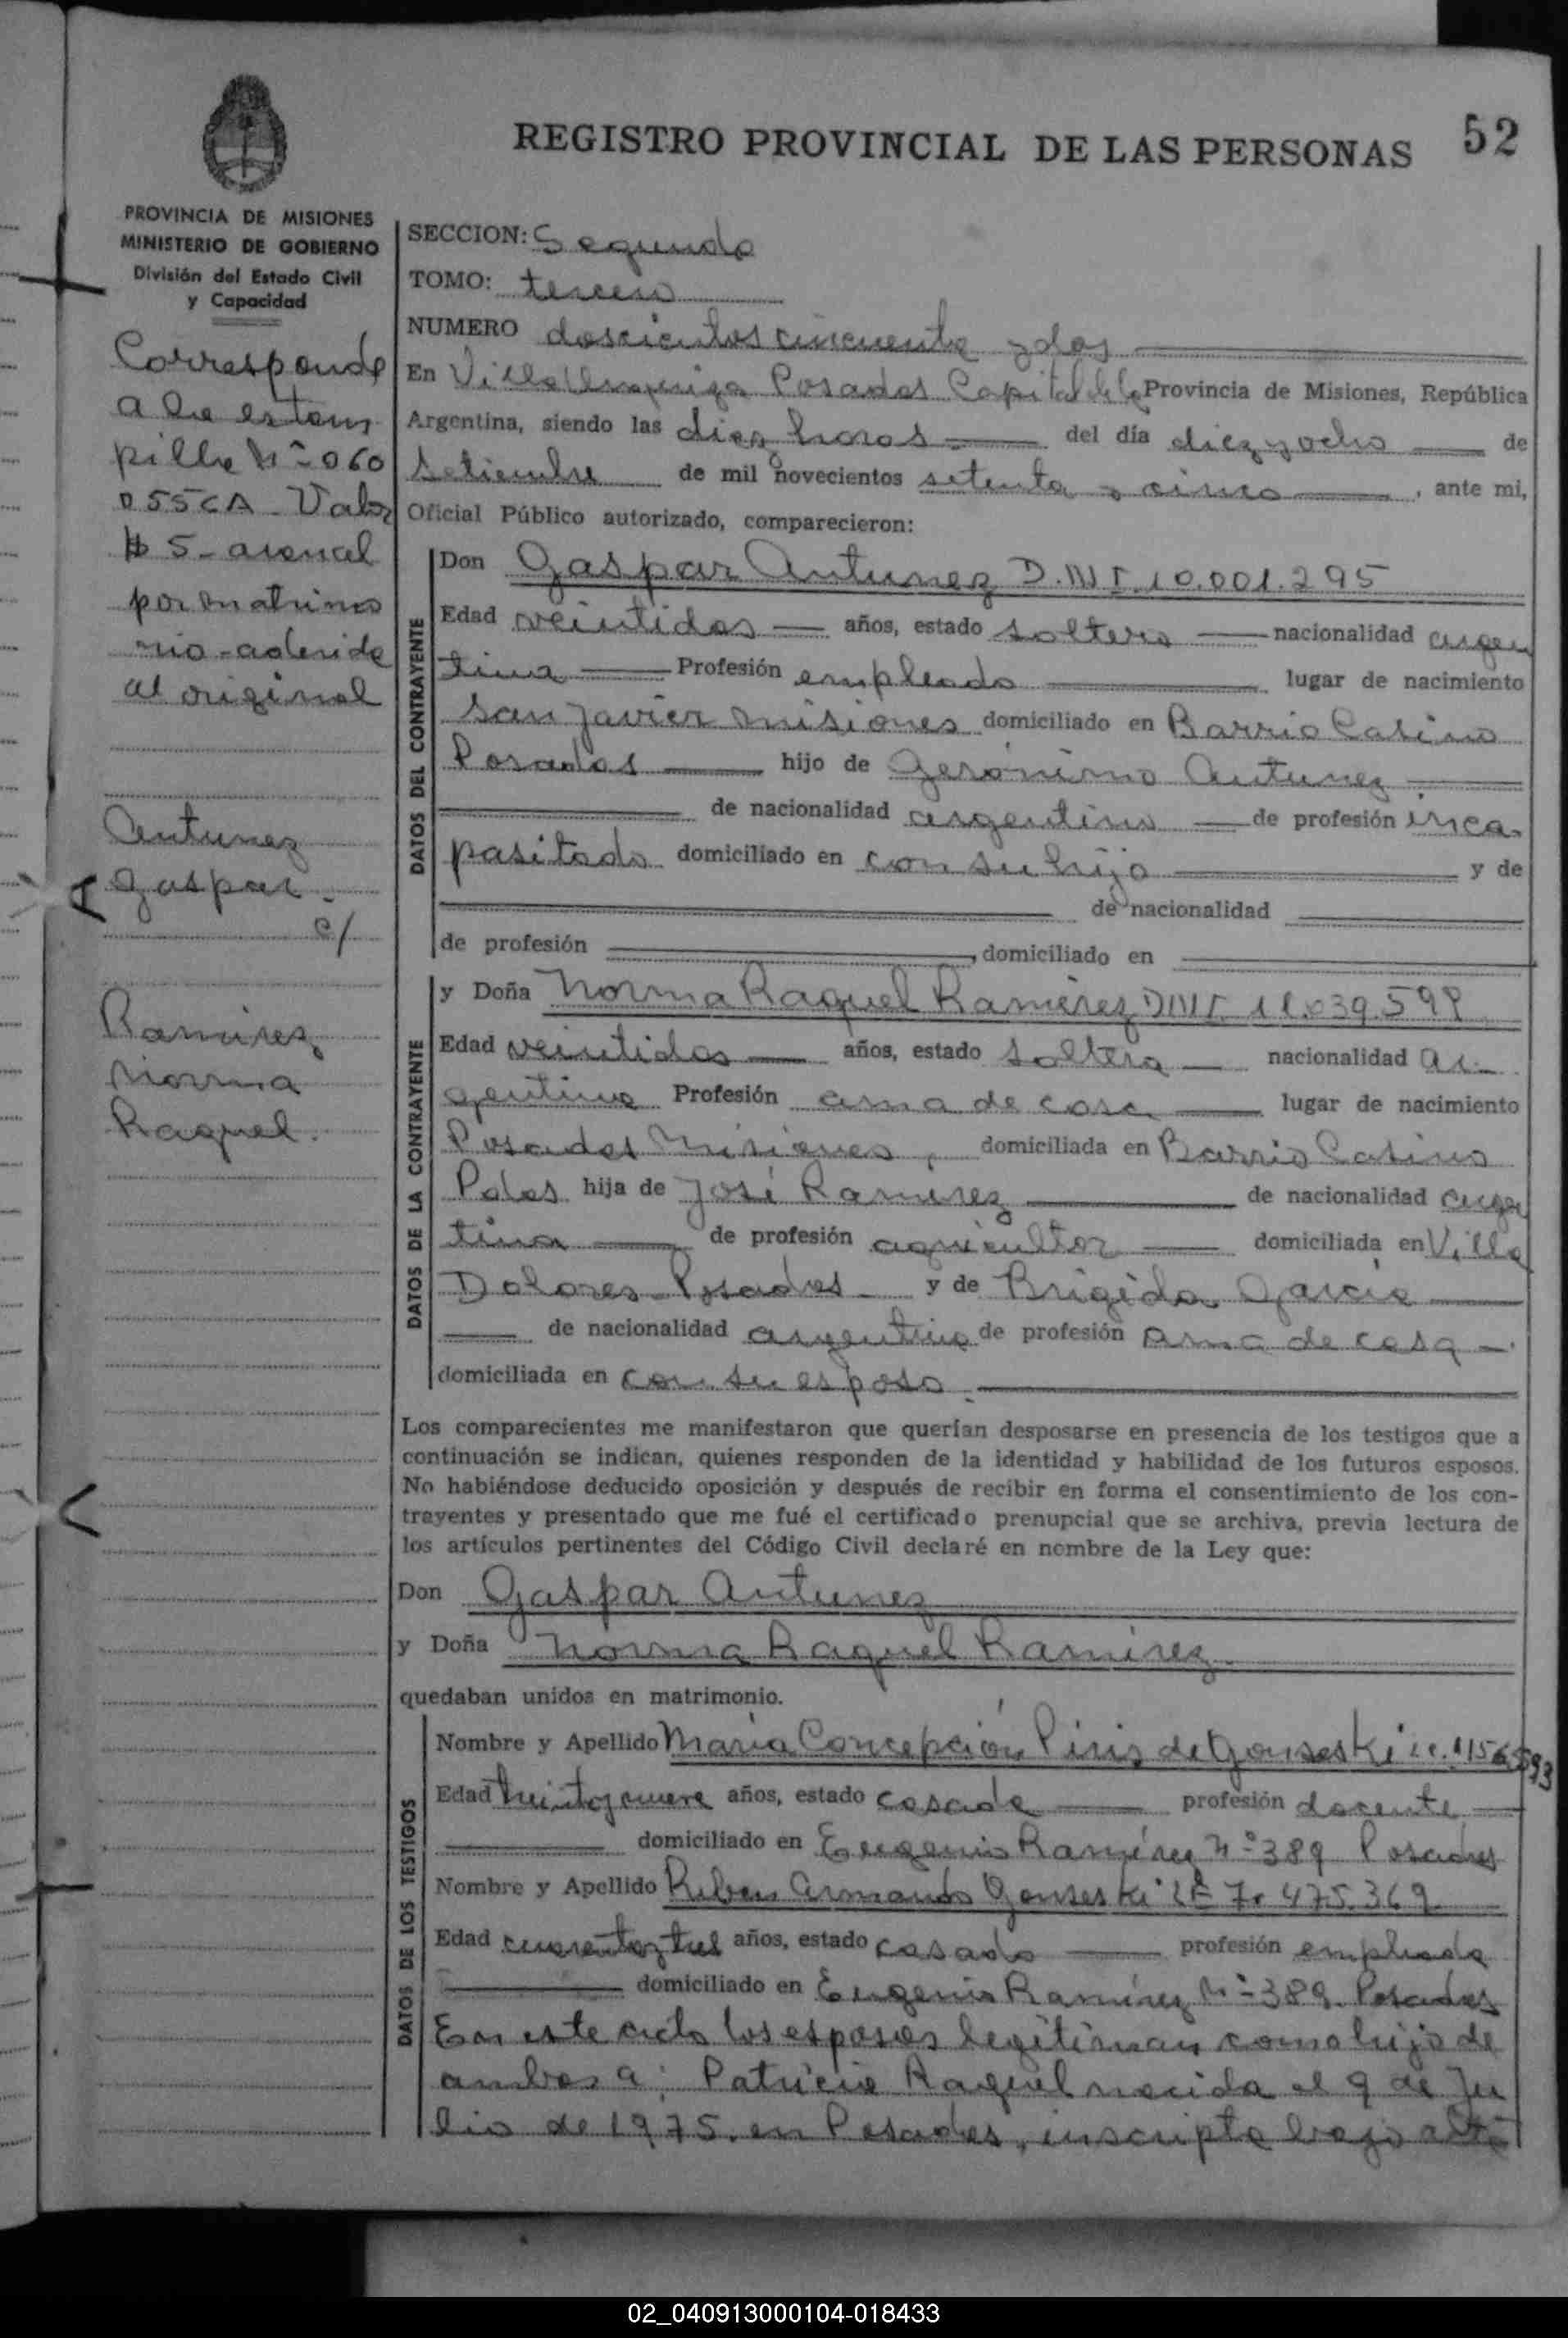 REGISTRO PROVINCIAL DE LAS PERSONAS 52
PROVINCIA DE MISIONES
MINISTERIO DE GOBIERNO
División del Estado Civil
y Capacidad
Corresponde
a la estam
pilla Nº 060
055CA - Valor
$ 5 - arancel
por matrimo
nio - aderida
al original
Antunez
Gaspar.
c/
Ramirez
Norma
Raquel.
SECCION: Segunda
TOMO: tercero
NUMERO doscientos cincuenta y dos
En Villa Urquiza Posadas Capital de la Provincia de Misiones, República
Argentina, siendo las diez horas del día diez y ocho de
Setiembre de mil novecientos setenta y cinco, ante mi,
Oficial Público autorizado, comparecieron:
DATOS DEL CONTRAYENTE
Don Gaspar Antunez D.N.I. 10.001.295
Edad veintidos años, estado soltero nacionalidad argen
tina Profesión empleado lugar de nacimiento
San Javier Misiones domiciliado en Barrio Casino
Posadas hijo de Gerónimo Antunez
de nacionalidad argentino de profesión inca
pasitado domiciliado en con su hijo y de
de nacionalidad
de profesión , domiciliado en
DATOS DE LA CONTRAYENTE
y Doña Norma Raquel Ramirez DNI. 11.039.598
Edad veintidos años, estado soltera nacionalidad ar-
gentina Profesión ama de casa lugar de nacimiento
Posadas Misiones, domiciliada en Barrio Casino
Pdas hija de José Ramirez de nacionalidad argen
tina de profesión agricultor domiciliada en Villa
Dolores - Posadas y de Brigida Garcia
de nacionalidad argentina de profesión ama de casa -
domiciliada en con su esposo.
Los comparecientes me manifestaron que querían desposarse en presencia de los testigos que a
continuación se indican, quienes responden de la identidad y habilidad de los futuros esposos.
No habiéndose deducido oposición y después de recibir en forma el consentimiento de los con-
trayentes y presentado que me fué el certificado prenupcial que se archiva, previa lectura de
los artículos pertinentes del Código Civil declaré en nombre de la Ley que:
Don Gaspar Antunez
y Doña Norma Raquel Ramirez
quedaban unidos en matrimonio.
DATOS DE LOS TESTIGOS
Nombre y Apellido Maria Concepción Piris de Gonseski
Edad treinta y nueve años, estado casada profesión docente
domiciliado en Eugenio Ramirez Nº 389 Posadas
Nombre y Apellido Ruben Armando Gonseski LE 7.475.369
Edad cuarenta y tres años, estado casado profesión empleado
domiciliado en Eugenio Ramirez Nº 389. Posadas
En este acto los esposos legitiman como hijo de
ambos a: Patricia Raquel nacida el 9 de Ju
lio de 1975. en Posadas, inscripta bajo acta
02_040913000104-018433